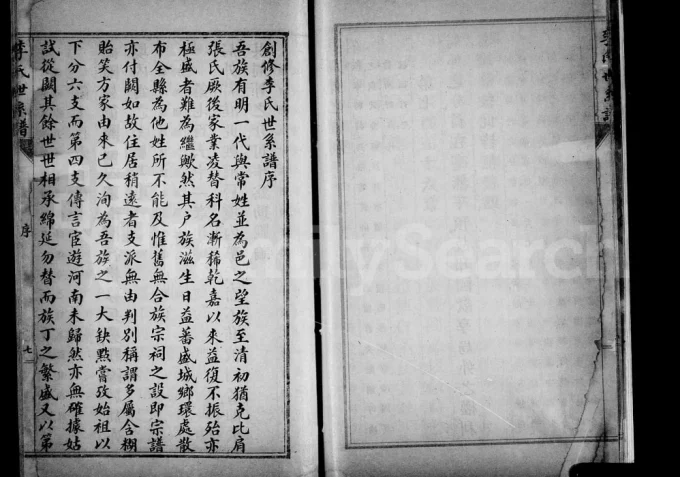 創修李氏世系譜序
吾族有明一代與常姓並為邑之望族至清初猶克比肩
張氏厥後家業凌替科名漸稀乾嘉以來益復不振殆亦
極盛者難為繼歟然其户族滋生日益蕃盛城鄉環處散
布全縣為他姓所不能及惟舊無合族宗祠之設即宗譜
亦付闕如故住居稍遠者支派無由判別稱謂多屬含糊
貽笑方家由來已久洵為吾族之一大缺點嘗攷始祖以
下分六支而第四支傳言宦遊河南未歸然亦無確據姑
試從闕其餘世世相承綿延勿替而族丁之繁盛又以第
李氏世系譜
序
七
FamilySearch